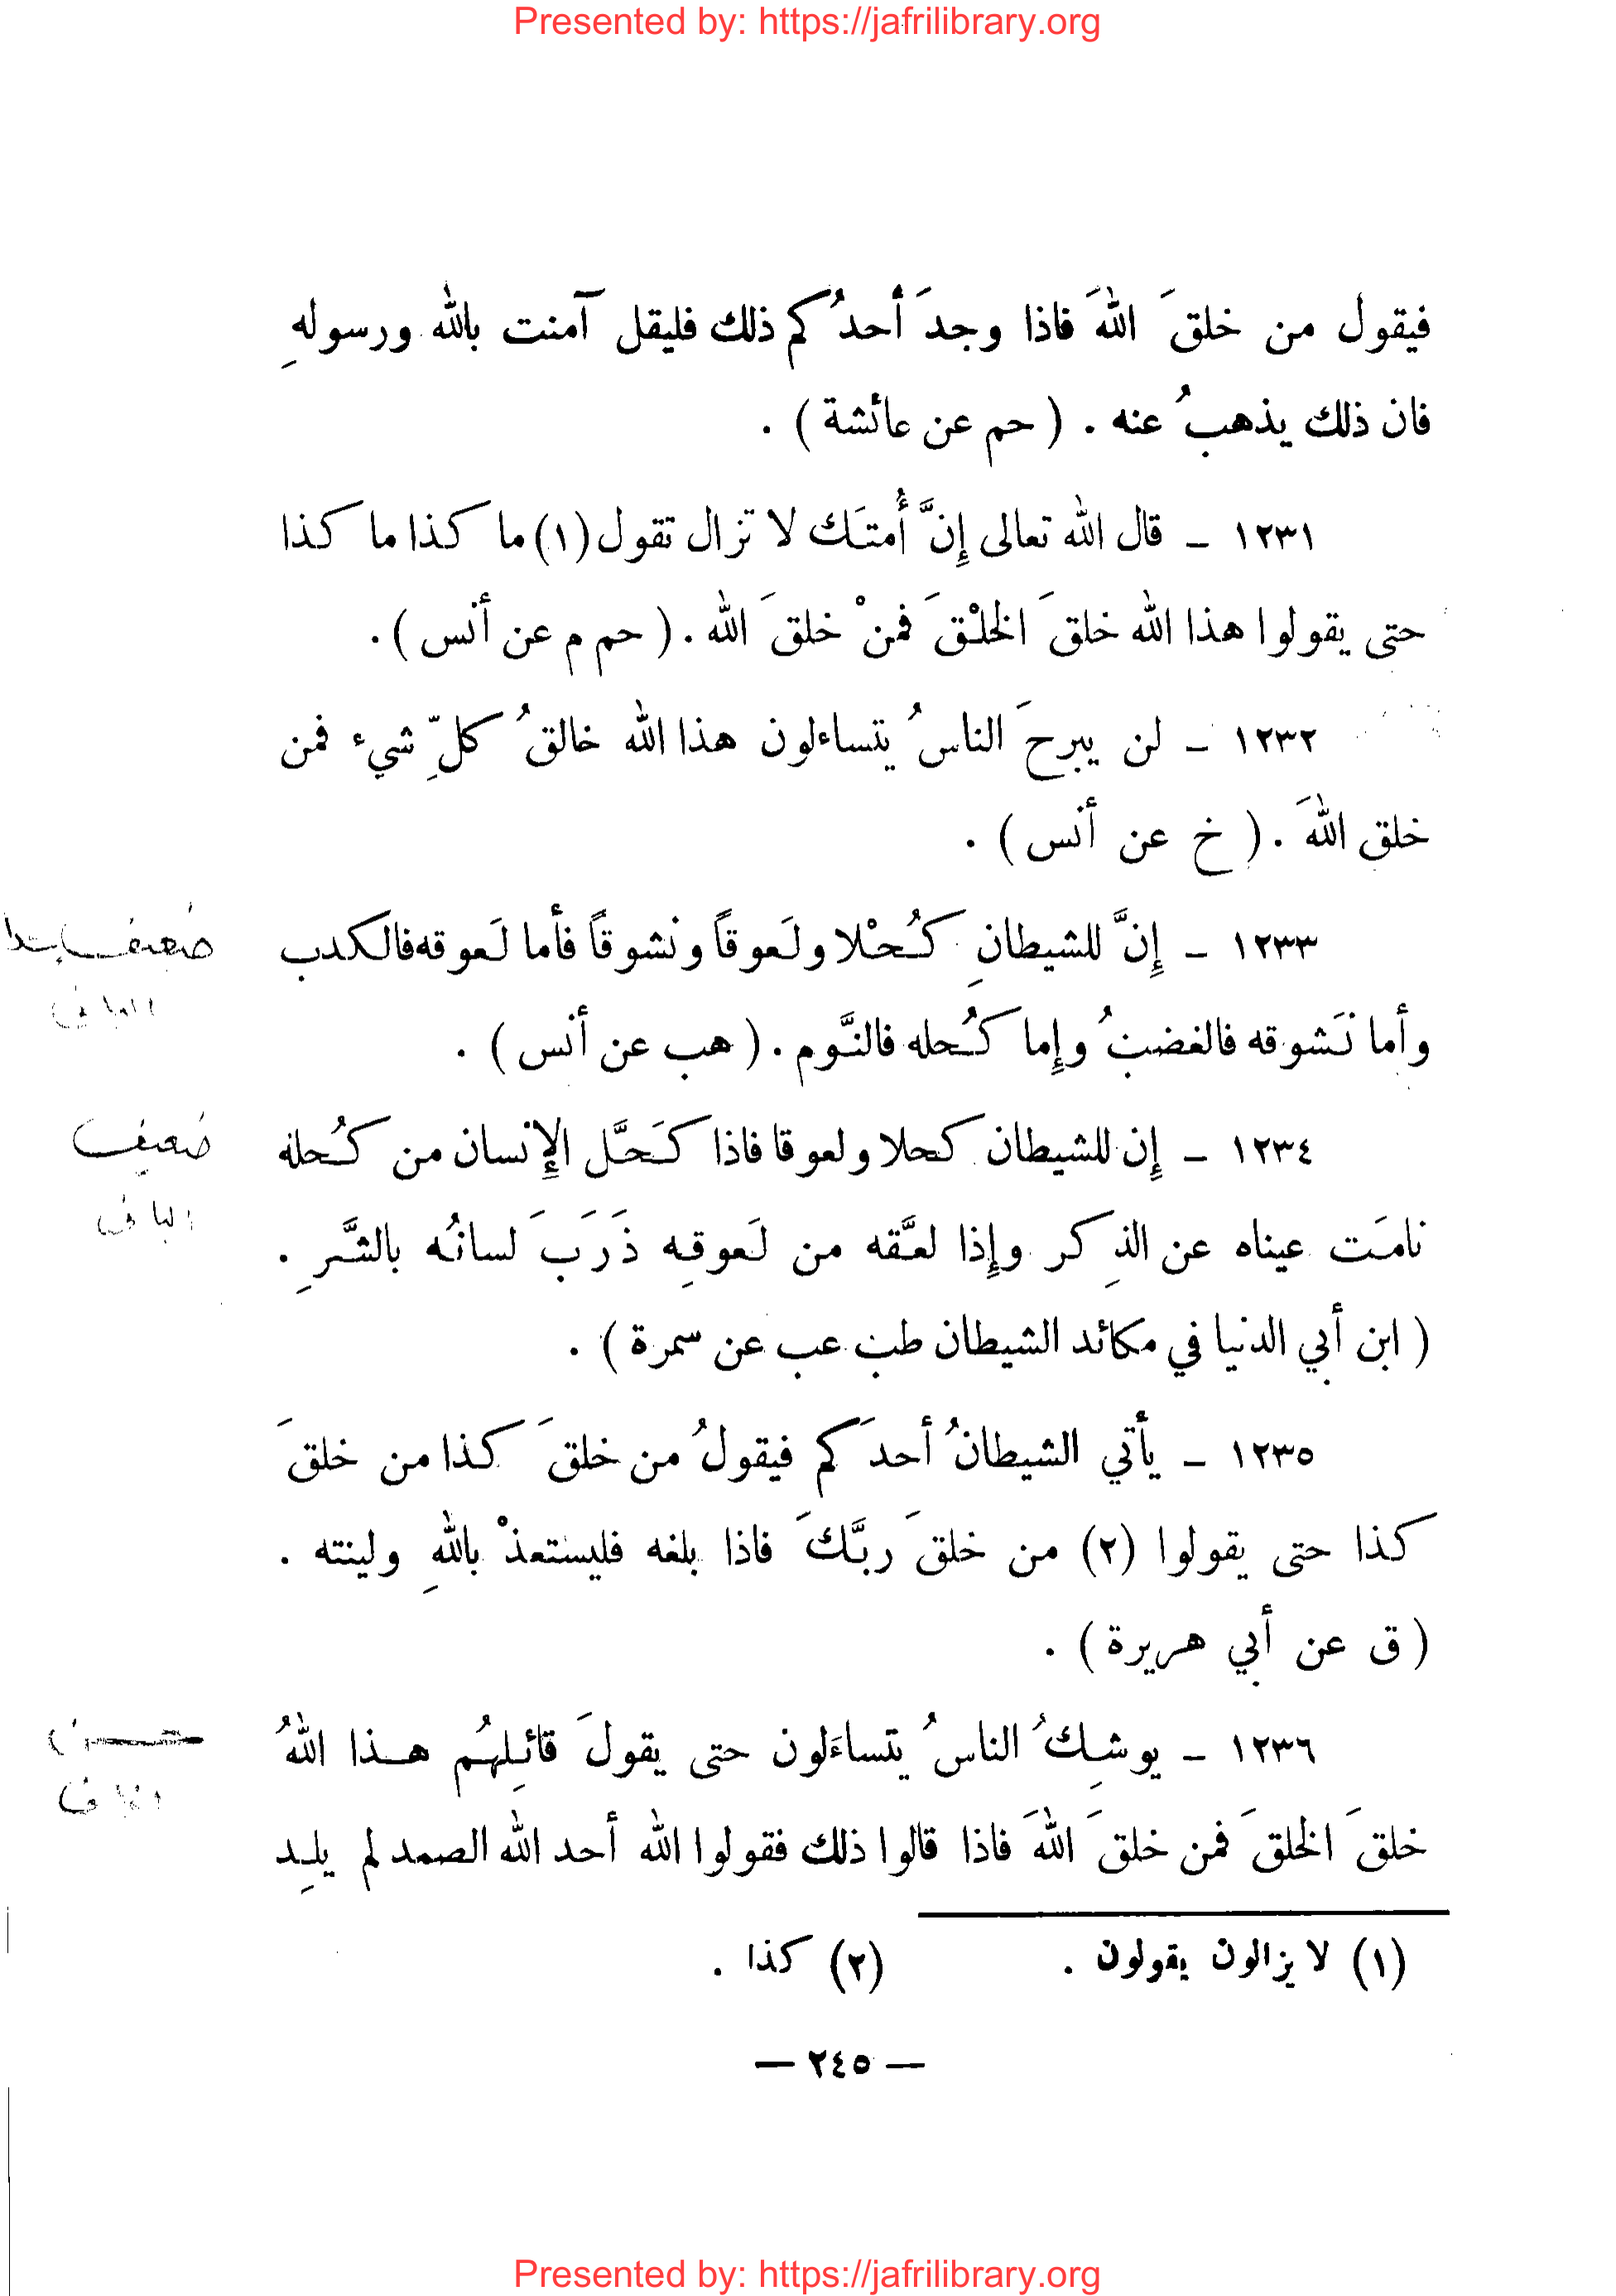 Presented by: https://jafrilibrary.org
فيقول من خلقَ اللهَ فاذا وجدَ أحدُكم ذلك فليقل آمنت بالله ورسولهِ
فان ذلك يذهبُ عنه . ( حم عن عائشة ) .
١٢٣١ – قال الله تعالى إِنَّ أُمتَك لا تزال تقول (١) ما كذا ما كذا
حتى يقولوا هذا الله خلقَ الخلْقَ فمنْ خلقَ الله . ( حم م عن أنس ) .
١٢٣٢ – لن يبرحَ الناسُ يتساءلون هذا الله خالقُ كلِّ شيء فمن
خلق اللهَ . ( خ عن أنس ) .
١٢٣٣ – إِنَّ للشيطانِ كُحْلا ولَعوقاً ونشوقاً فأما لَعوقه فالكدب
وأما نَشوقه فالغضبُ وإِما كُحله فالنَّوم . ( هب عن أنس ) .
ضعيف جدا
البانى
١٢٣٤ – إِن للشيطان كحلا ولعوقا فاذا كَحَّل الإِنسان من كُحله
نامَت عيناه عن الذِكر وإِذا لعَّقه من لَعوقِه ذَرَبَ لسانُه بالشَّرِ .
( ابن أبي الدنيا في مكائد الشيطان طب عب عن سمرة ) .
ضعيف
البانى
١٢٣٥ – يأتي الشيطانُ أحدَكم فيقولُ من خلقَ كذا من خلقَ
كذا حتى يقولوا (٢) من خلقَ ربَّكَ فاذا بلغه فليستعذْ باللهِ ولينته .
( ق عن أبي هريرة ) .
١٢٣٦ – يوشِكُ الناسُ يتساءَلون حتى يقولَ قائِلهُم هـذا اللهُ
خلقَ الخلقَ فمن خلقَ اللهَ فاذا قالوا ذلك فقولوا الله أحد الله الصمد لم يلِد
حسن
البانى
(١) لا يزالون يقولون .
(٢) كذا .
— ٢٤٥ —
Presented by: https://jafrilibrary.org